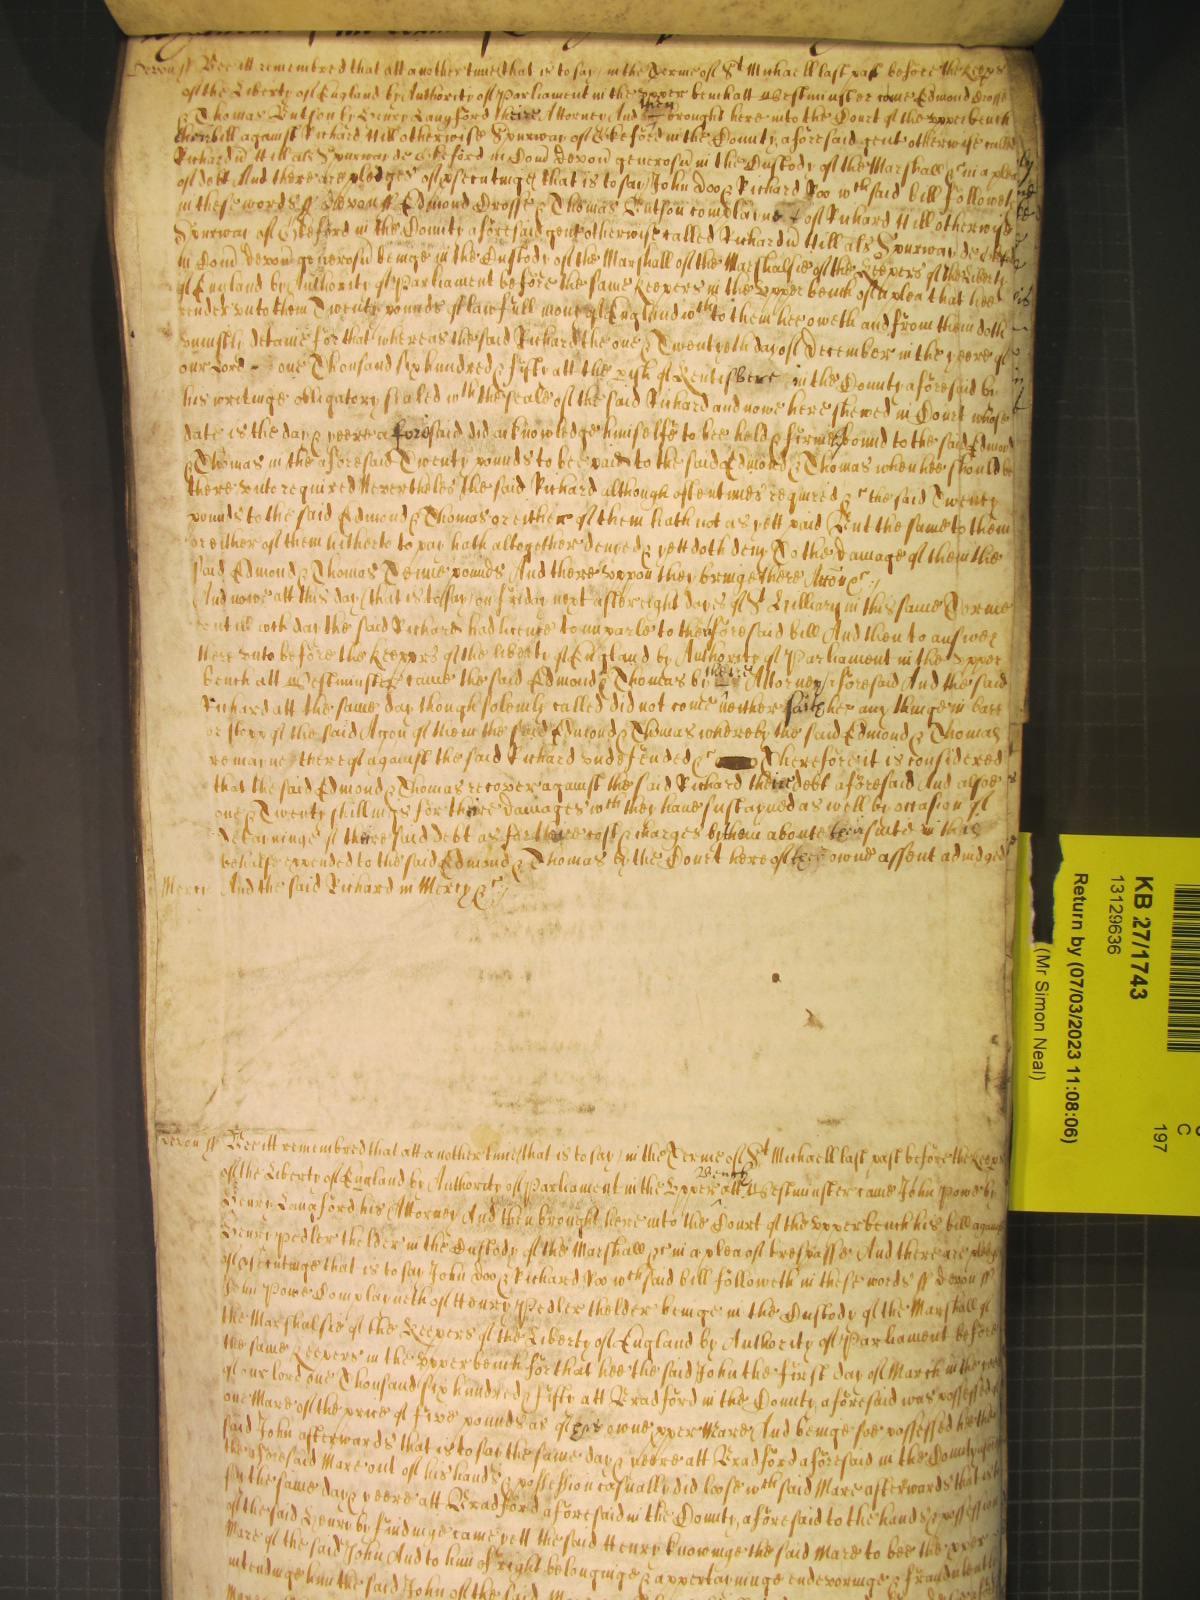 Devon ss Bee itt remembred that att another time that is to say in the Terme of St Michaell last past before the Keeps
of the Liberty of England by Authority of Parliament in the upper bench att Westminster came Edmond Crosse
& Thomas Butson by Henry Langford theire Attorney And then brought here into the Court of the upper bench
their bill against Richard Hill otherwise Spurway of Okeford in the County aforesaid gent otherwise called
Richard Hill als Spurway de Okeford in Com Devon generosu in the Custody of the Marshall &c in a plea
of debt And there are pledges of prosecutinge that is to say John Doo & Richard Roo wch said bill followeth
in these words ss Devon ss Edmond Crosse & Thomas Butson complaine of Richard Hill otherwise
Spurway of Okeford in the County aforesaid gent otherwise called Richard Hill als Spurway de Okeford
in Com Devon generosu beinge in the Custody of the Marshall of the Marshalsie of the Keepers of the Liberty
of England by Authority of Parliament before the same Keepers in the upper bench of a plea that hee
render unto them Twenty pounds of lawfull mony of England wch to them hee oweth and from them doth
uniustly detaine for that whereas the said Richard the one & Twentyeth day of December in the yeere of
our Lord one Thousand six hundred & fifty att the pish of Bentisbere in the County aforesaid by
his writinge obligatory sealed wth the seale of the said Richard and nowe here shewed in Court whose
date is the day & yeere aforesaid did acknowledge himselfe to bee held & firmely bound to the said Edmond
& Thomas in the aforesaid Twenty pounds to bee paid to the said Edmond & Thomas when hee should be
there unto required Nevertheles the said Richard although oftentimes required &c the said Twenty
pounds to the said Edmond & Thomas or either of them hath not as yett paid But the same to them
or either of them hitherto to pay hath altogether denyed & yett doth deny To the damage of them the
said Edmond & Thomas Tenne pounds And there uppon they bringe there Accon &c
And nowe att this day that is to say on Friday next after eight dayes of St Hillary in this same Terme
untill wch day the said Richard had licence to imparle to the aforesaid bill And then to answer
there unto before the Keepers of the liberty of England by Authority of Parliament in the upper
bench att Westminster came the said Edmond & Thomas by theire Attorney aforesaid And the said
Richard att the same day though solemly called did not come neither saith hee any thinge in barr
or stopp of the said Accon of them the said Edmond & Thomas whereby the said Edmond & Thomas
remaine thereof against the said Richard undefended &c Therefore it is considered
that the said Edmond & Thomas recover against the said Richard theire debt aforesaid And alsoe
one & Twenty shillings for theire damages wch they have sustayned as well by occasion of
detayninge of theire said debt as for theire costs & charges by them aboute their suite in this
behalfe expended to the said Edmond & Thomas by the Court here of their owne assent adiudged
Mercy And the said Richard in Mercy &c
Devon ss Bee itt remembred that att another time that is to say in the Terme of St Michaell last past before the Keeps
of the Liberty of England by Authority of Parliament in the Upper Bench att Westminster came John Powe by
Henry Langford his Attorney And then brought here into the Court of the upper bench his bill against
Henry Pedler thelder in the Custody of the Marshall &c in a plea of trespasse And there are pledges
of psecutinge that is to say John Doo & Richard Roo wch said bill followeth in these words ss Devon ss
John Powe Complayneth of Henry Pedler thelder beinge in the Custody of the Marshall of
the Marshalsie of the Keepers of the Liberty of England by Authority of Parliament before
the same Keepers in the upper bench for that hee the said John the first day of March in the yeere
of our lord one Thousand six hundred & fifty att Bradford in the County aforesaid was possessed of
one Mare of the price of five pounds as of his owne pper Mare And beinge soe possessed hee the
said John afterwards that is to say the same day & yeere att Bradford aforesaid in the County aforesaid
the aforesaid Mare out of his hands & possession casually did loose wch said Mare afterwards that is to
say the same day & yeere att Bradford aforesaid in the County aforesaid to the hands & possession
of the said Henry by findinge came yett the said Henry knowinge the said Mare to bee the pper
Mare of the said John And to him of right belonginge & appertayninge endevoringe & fraudulently
intendinge him the said John of the said
KB 27/1743
13129636
Return by (07/03/2023 11:08:06)
(Mr Simon Neal)
C
197